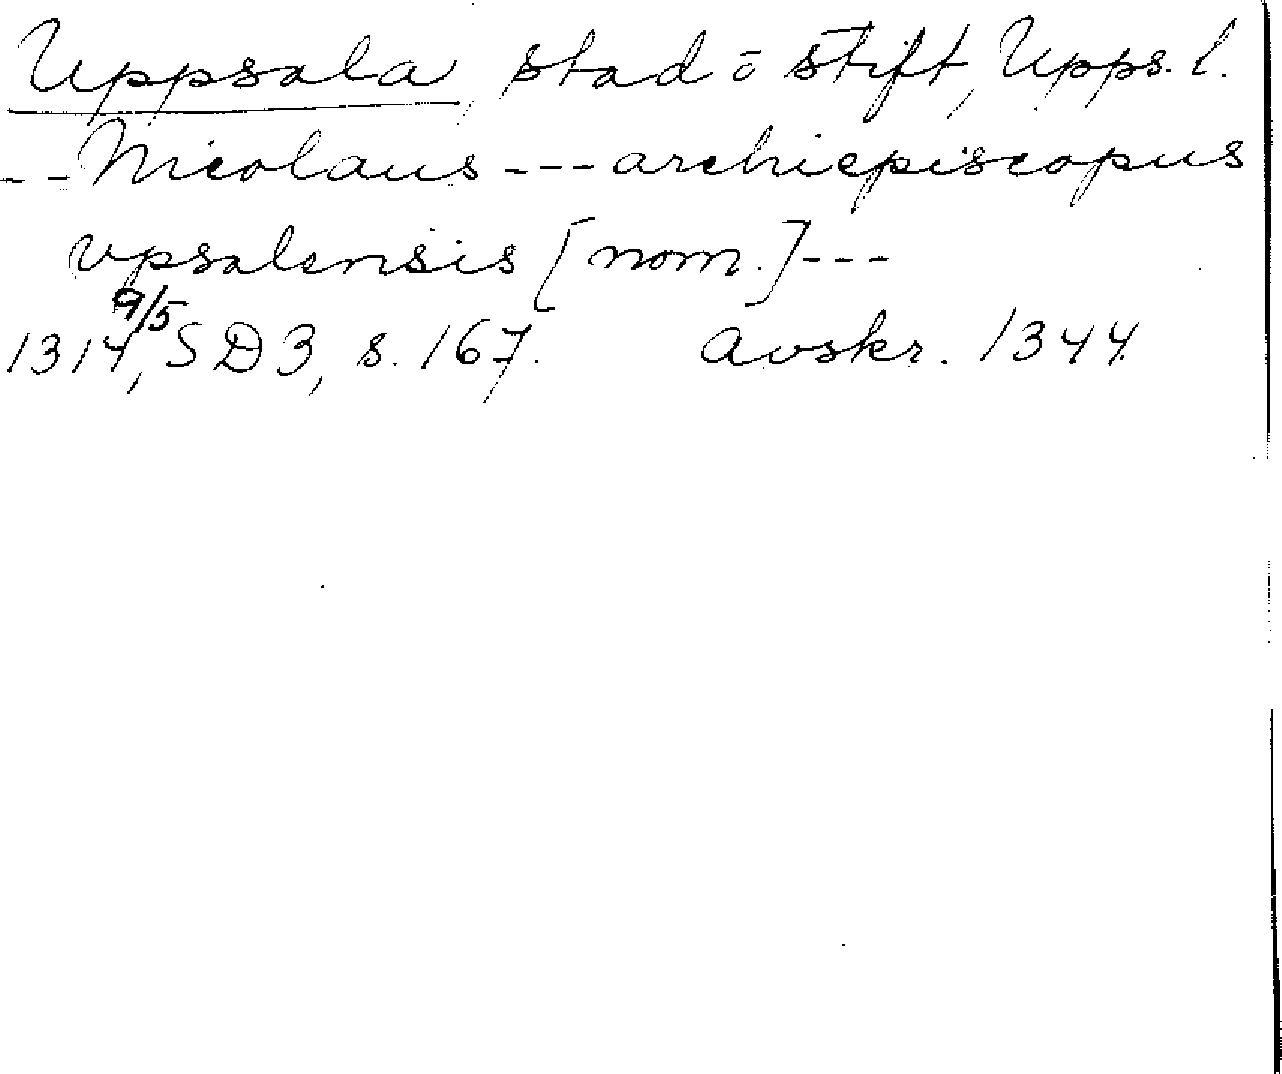 Uppsala, stad ō stift, Upps. l.
-- Nicolaus --- archiepiscopus
vpsalensis [nom.] ---
1314 9/5, SD 3, s. 167. Avskr. 1344